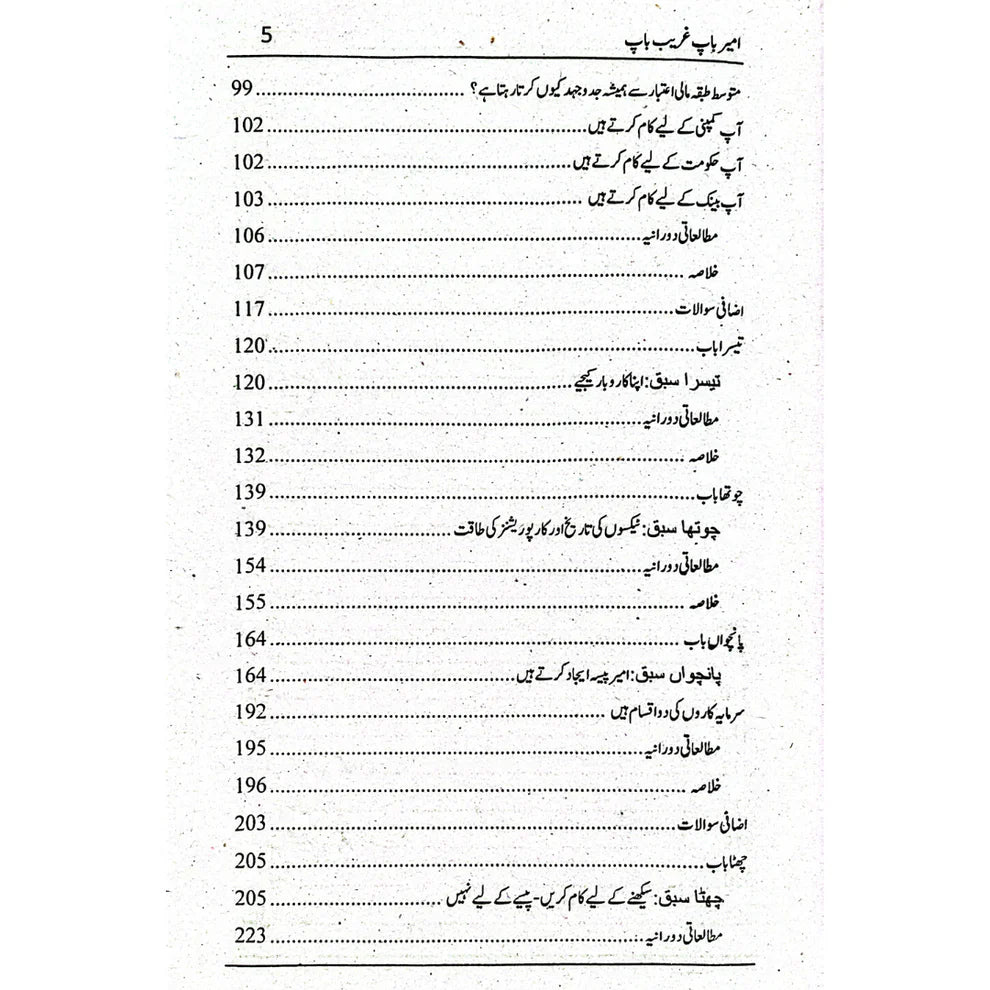 امیر باپ غریب باپ 5
متوسط طبقہ مالی اعتبار سے ہمیشہ جدوجہد کیوں کرتا رہتا ہے؟ 99
آپ کمپنی کے لیے کام کرتے ہیں 102
آپ حکومت کے لیے کام کرتے ہیں 102
آپ بینک کے لیے کام کرتے ہیں 103
مطالعاتی دورانیہ 106
خلاصہ 107
اضافی سوالات 117
تیسرا باب 120
تیسرا سبق: اپنا کاروبار کیجیے 120
مطالعاتی دورانیہ 131
خلاصہ 132
چوتھا باب 139
چوتھا سبق: ٹیکسوں کی تاریخ اور کارپوریشنز کی طاقت 139
مطالعاتی دورانیہ 154
خلاصہ 155
پانچواں باب 164
پانچواں سبق: امیر پیسہ ایجاد کرتے ہیں 164
سرمایہ کاروں کی دو اقسام ہیں 192
مطالعاتی دورانیہ 195
خلاصہ 196
اضافی سوالات 203
چھٹا باب 205
چھٹا سبق: سیکھنے کے لیے کام کریں - پیسے کے لیے نہیں 205
مطالعاتی دورانیہ 223